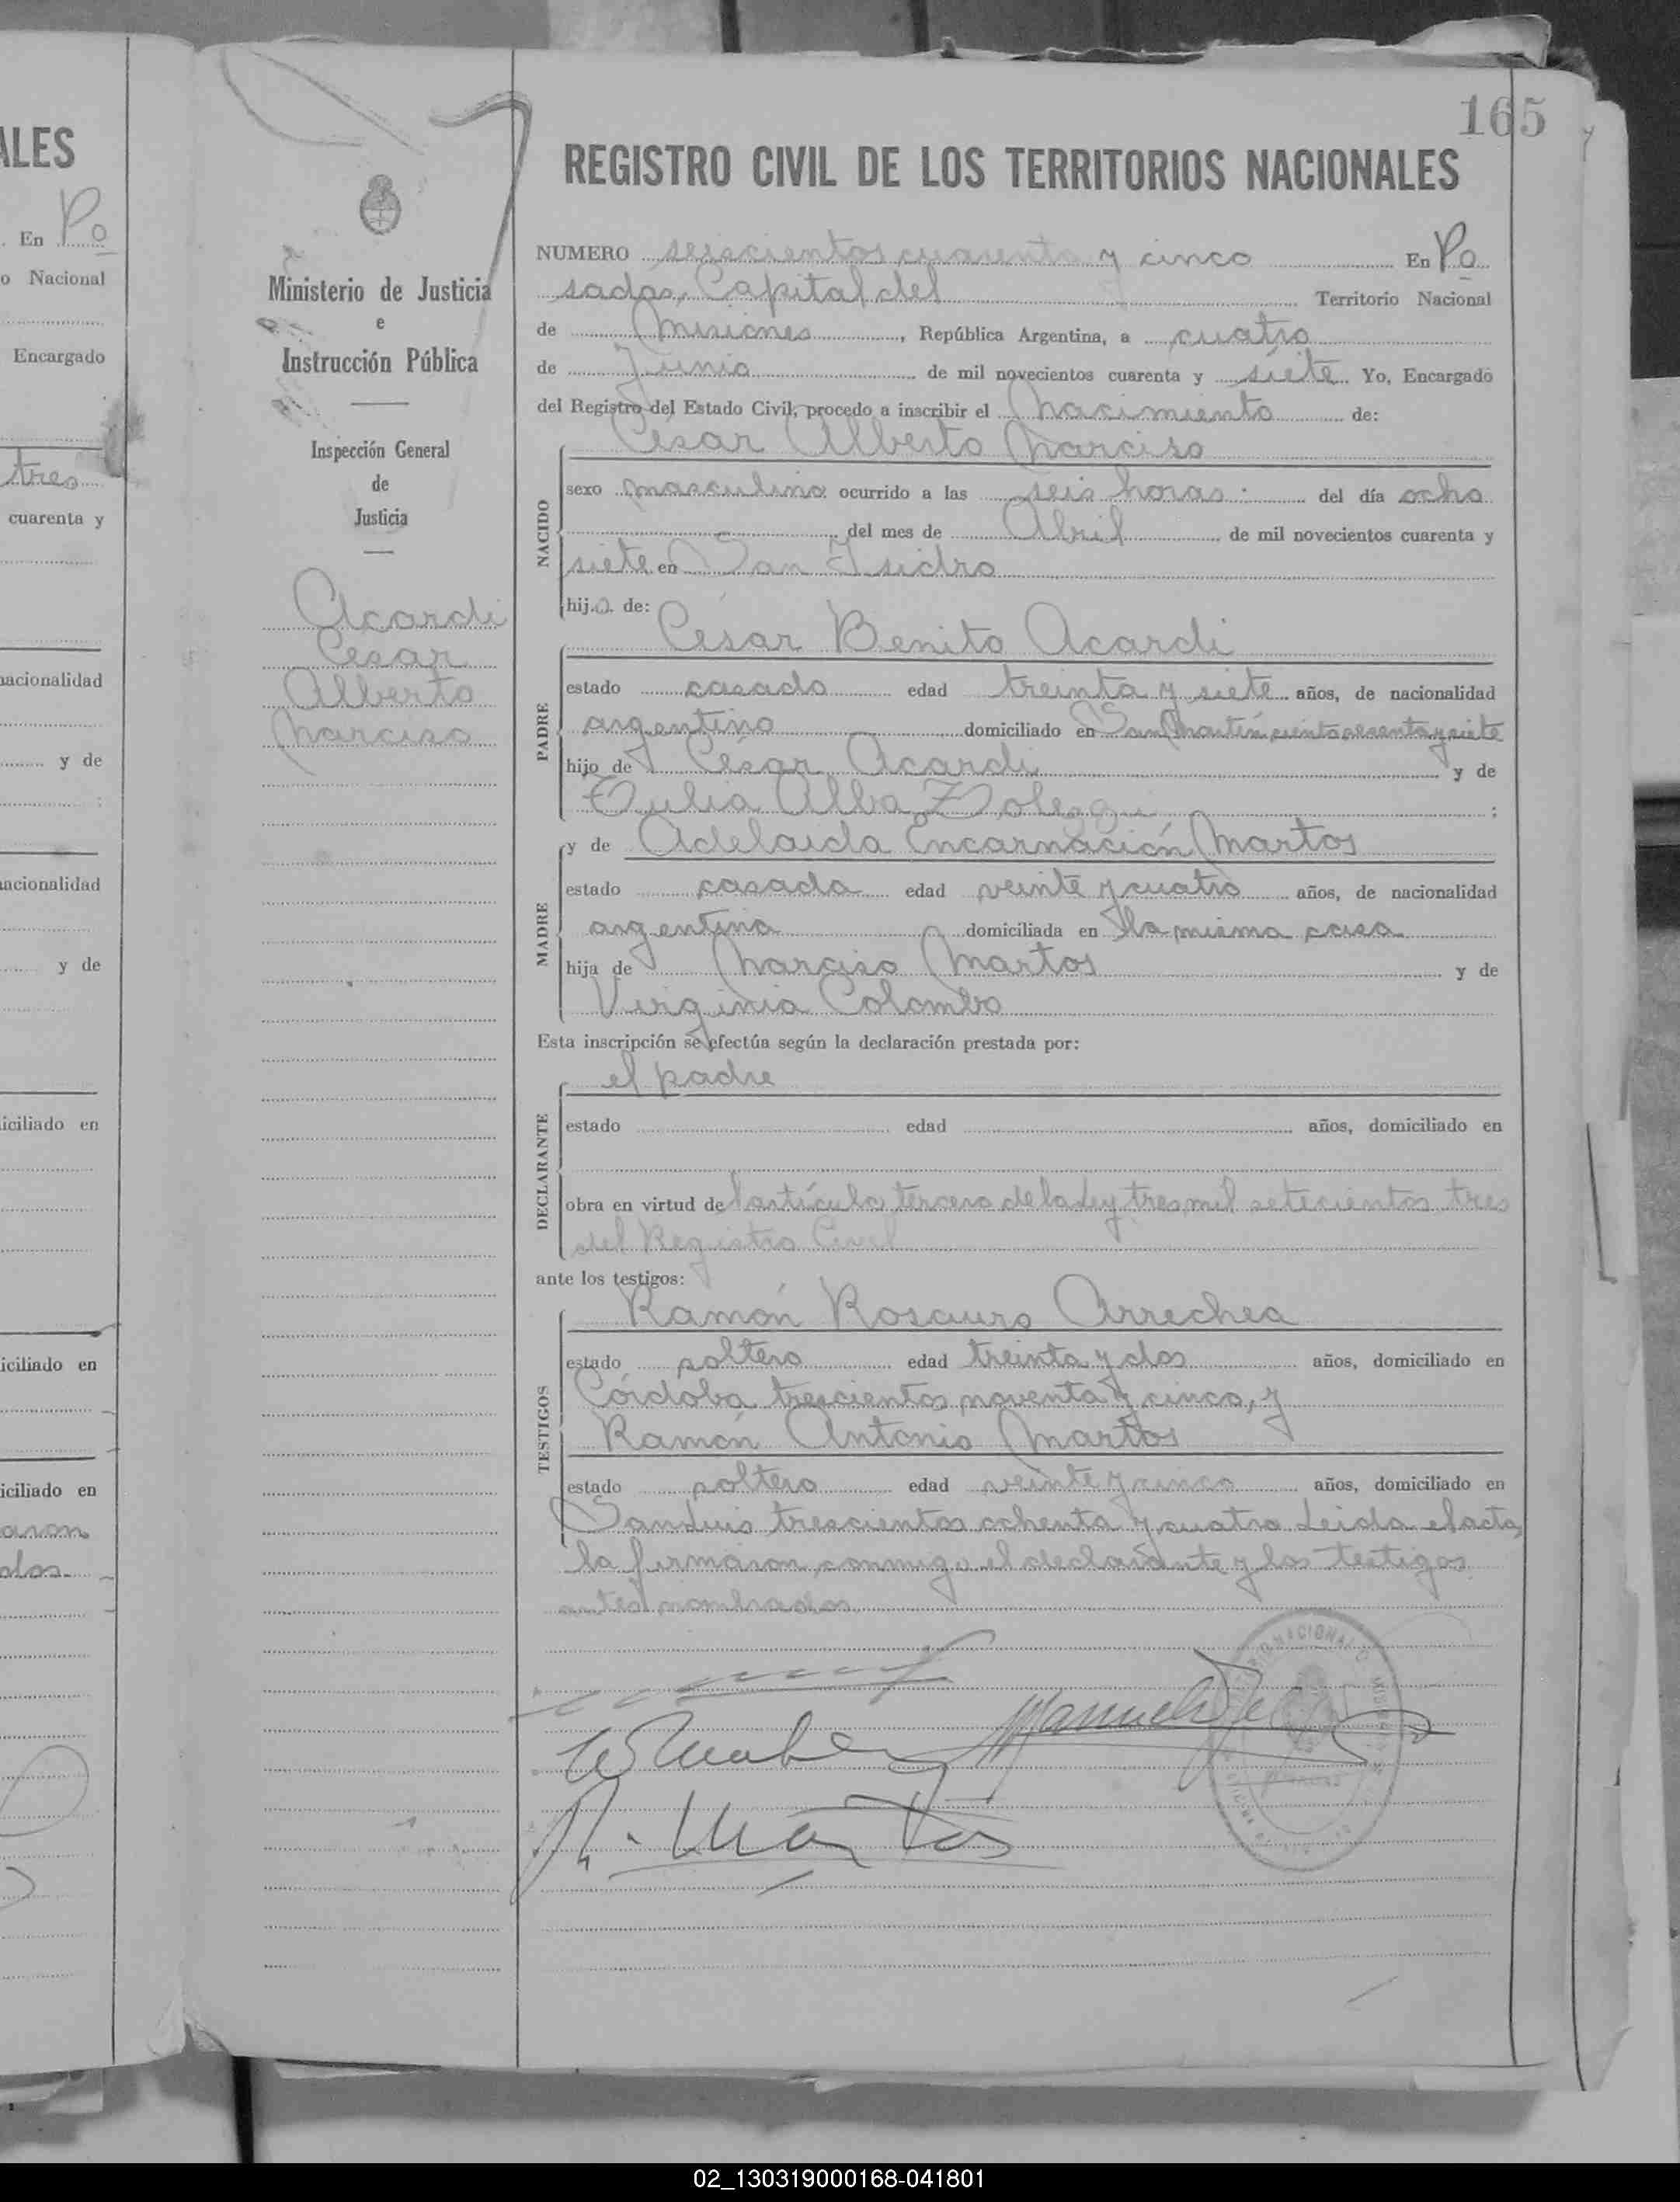 165
ALES
En Po
o Nacional
Encargado
tres
cuarenta y
nacionalidad
y de
nacionalidad
y de
iciliado en
iciliado en
iciliado en
aron
dos.
Ministerio de Justicia
e
Instrucción Pública
Inspección General
de
Justicia
Acardi
Cesar
Alberto
Narciso
REGISTRO CIVIL DE LOS TERRITORIOS NACIONALES
NUMERO seiscientos cuarenta y cinco En Po
sadas, Capital del Territorio Nacional
de Misiones, República Argentina, a cuatro
de Junio de mil novecientos cuarenta y siete Yo, Encargado
del Registro del Estado Civil, procedo a inscribir el Nacimiento de:
César Alberto Narciso
NACIDO
sexo masculino ocurrido a las seis horas del día ocho
del mes de Abril de mil novecientos cuarenta y
siete en San Isidro
hijo de:
César Benito Acardi
PADRE
estado casado edad treinta y siete años, de nacionalidad
argentino domiciliado en San Martín ciento sesenta y siete
hijo de César Acardi y de
Tulia Alba ;
y de Adelaida Encarnación Martos
MADRE
estado casada edad veinte y cuatro años, de nacionalidad
argentina domiciliada en la misma casa
hija de Narciso Martos y de
Virginia Colombo
Esta inscripción se efectúa según la declaración prestada por:
el padre
DECLARANTE
estado edad años, domiciliado en
obra en virtud del artículo tercero de la Ley tres mil setecientos tres
del Registro Civil
ante los testigos:
Ramón Rosauro Arrechea
TESTIGOS
estado soltero edad treinta y dos años, domiciliado en
Córdoba trescientos noventa y cinco, y
Ramón Antonio Martos
estado soltero edad veinte y cinco años, domiciliado en
San Luis trescientos ochenta y cuatro Leida el acta,
la firmaron conmigo el declarante y los testigos
antes nombrados
R. Martos
02_130319000168-041801